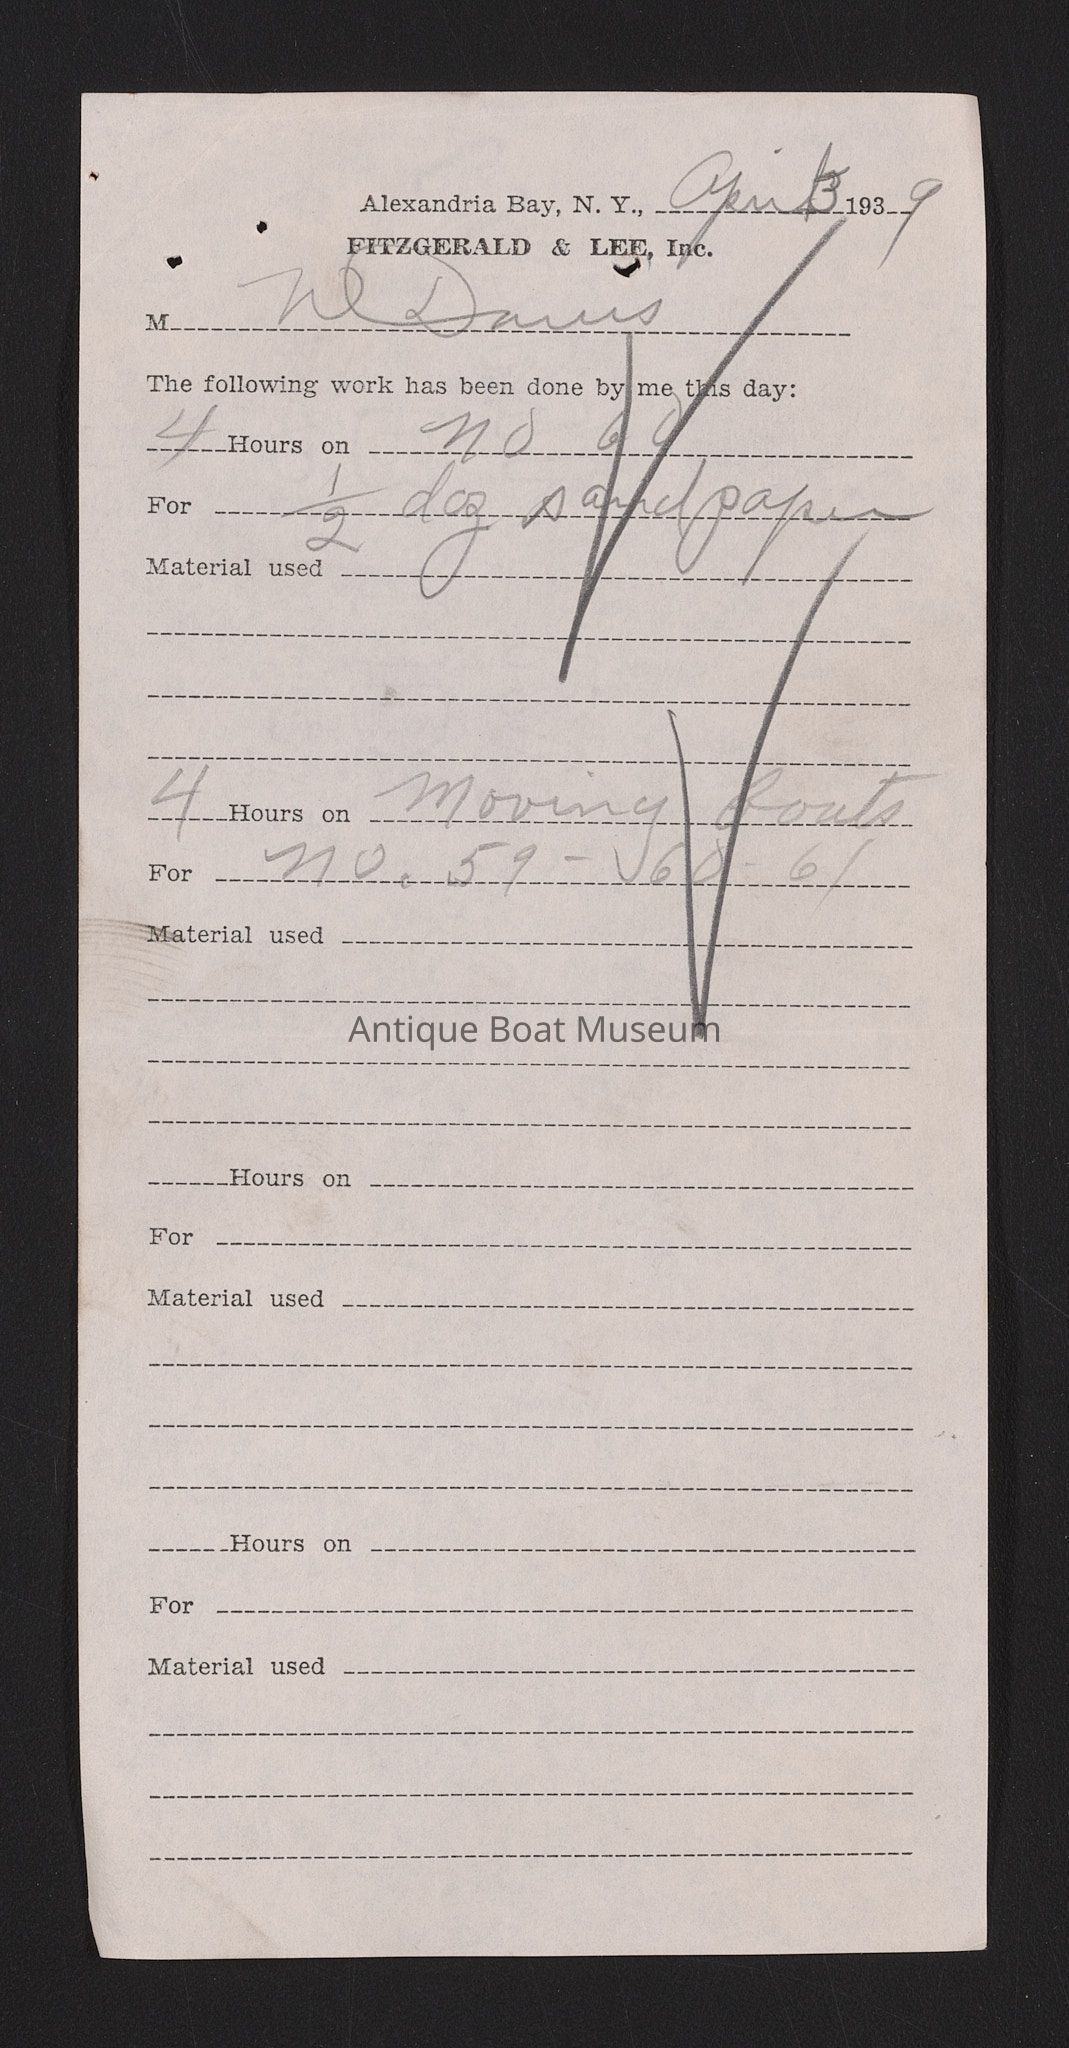 Alexandria Bay, N. Y., April 3 1939
FITZGERALD & LEE, Inc.
M W Davis
The following work has been done by me this day:
4 Hours on No 60
For 1/2 doz sandpaper
Material used
4 Hours on Moving Boats
For No. 59 - 60 - 61
Material used
Antique Boat Museum
Hours on
For
Material used
Hours on
For
Material used